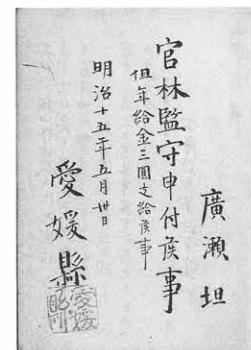 廣瀬坦
官林監守申付候事
但年給金三圓支給候事
明治十五年五月卅日
愛媛縣
愛媛縣印